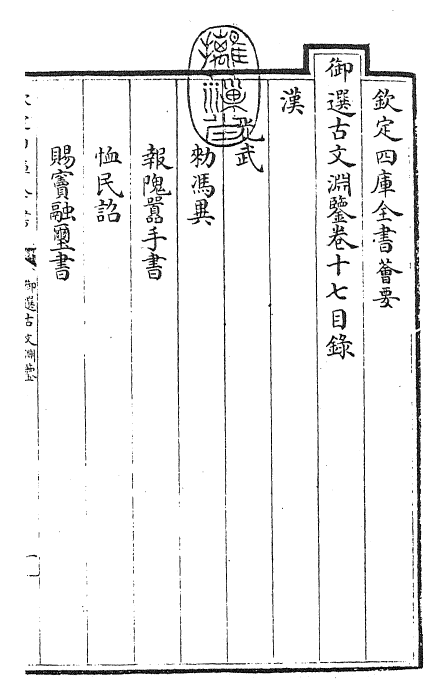 欽定四庫全書薈要
御選古文淵鑒卷十七目錄
漢
光武
勑馮異
報隗囂手書
恤民詔
賜竇融璽書
御選古文淵鑒
一